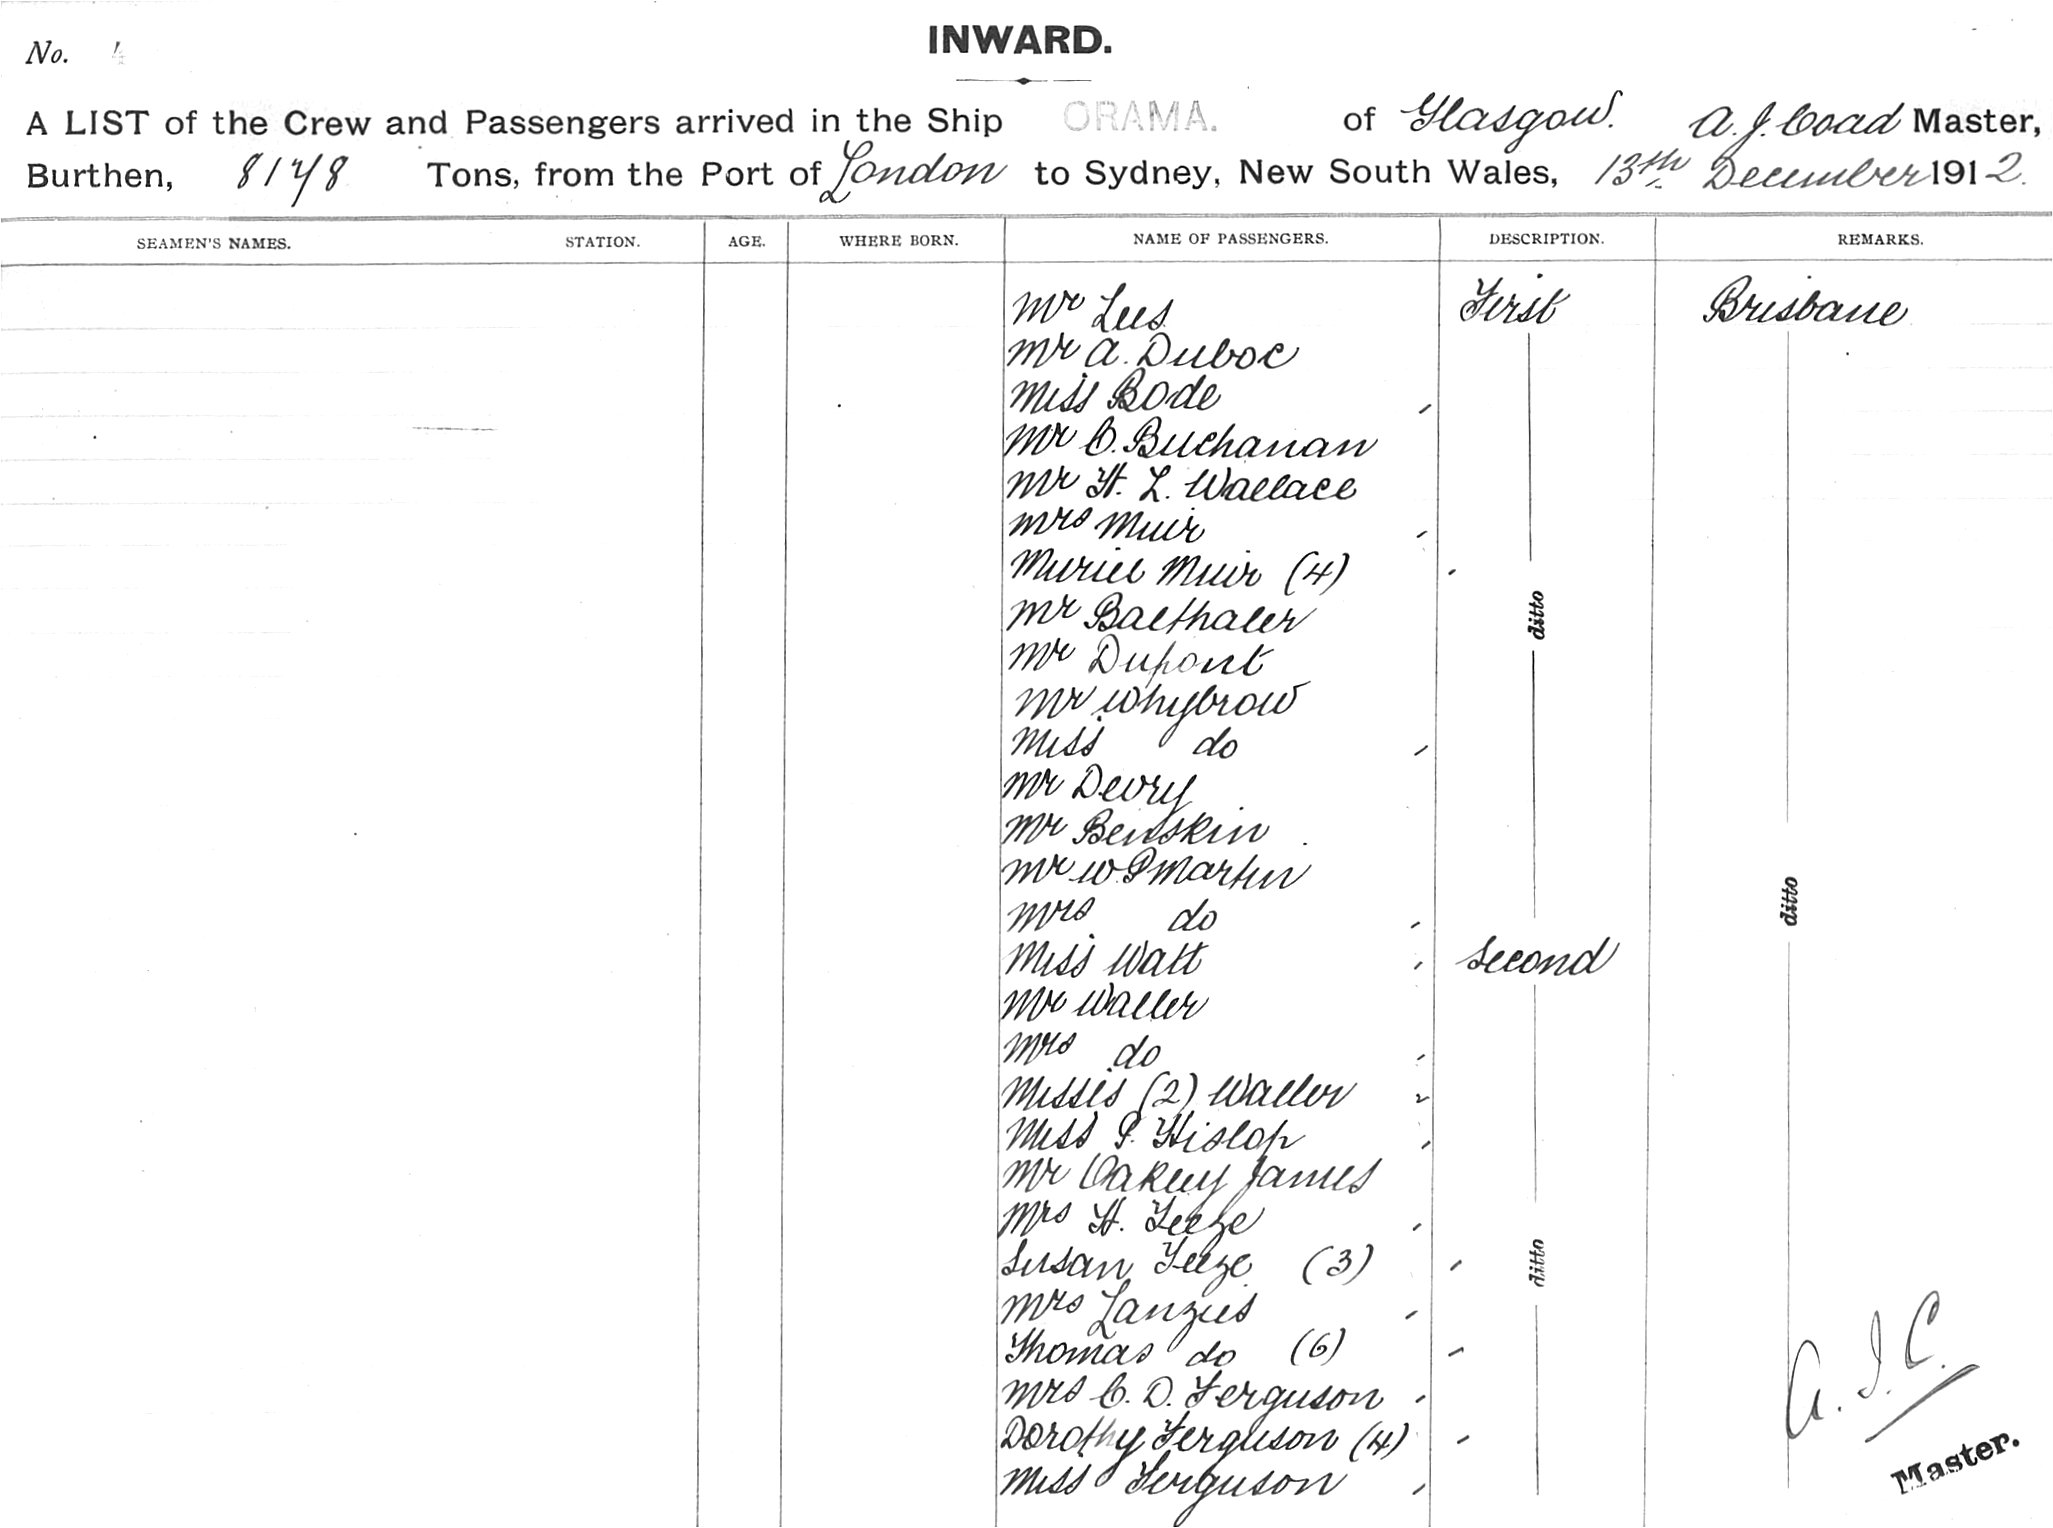 No. 4
INWARD.
A LIST of the Crew and Passengers arrived in the Ship ORAMA. of Glasgow. A. J. Coad Master,
Burthen, 8178 Tons, from the Port of London to Sydney, New South Wales, 13th December 1912.
SEAMEN'S NAMES. STATION. AGE. WHERE BORN. NAME OF PASSENGERS. DESCRIPTION. REMARKS.
Mr Lees First Brisbane
Mr A. Duboc
Miss Bode
Mr C. Buchanan
Mr H. L. Wallace
Mrs Muir
Muriel Muir (4)
Mr Balthaler ditto
Mr Dupont
Mr Whybrow
Miss do
Mr Devry
Mr Benskin
Mr W. P Martin
Mrs do ditto
Miss Watt Second
Mr Waller
Mrs do
Misses (2) Waller
Miss P. Hislop
Mr Oakley James
Mrs H. Feeze
Susan Feeze (3) ditto
Mrs Lanzies
Thomas do (6)
Mrs C. D. Ferguson
Dorothy Ferguson (4)
Miss Ferguson
A. J. C.
Master.